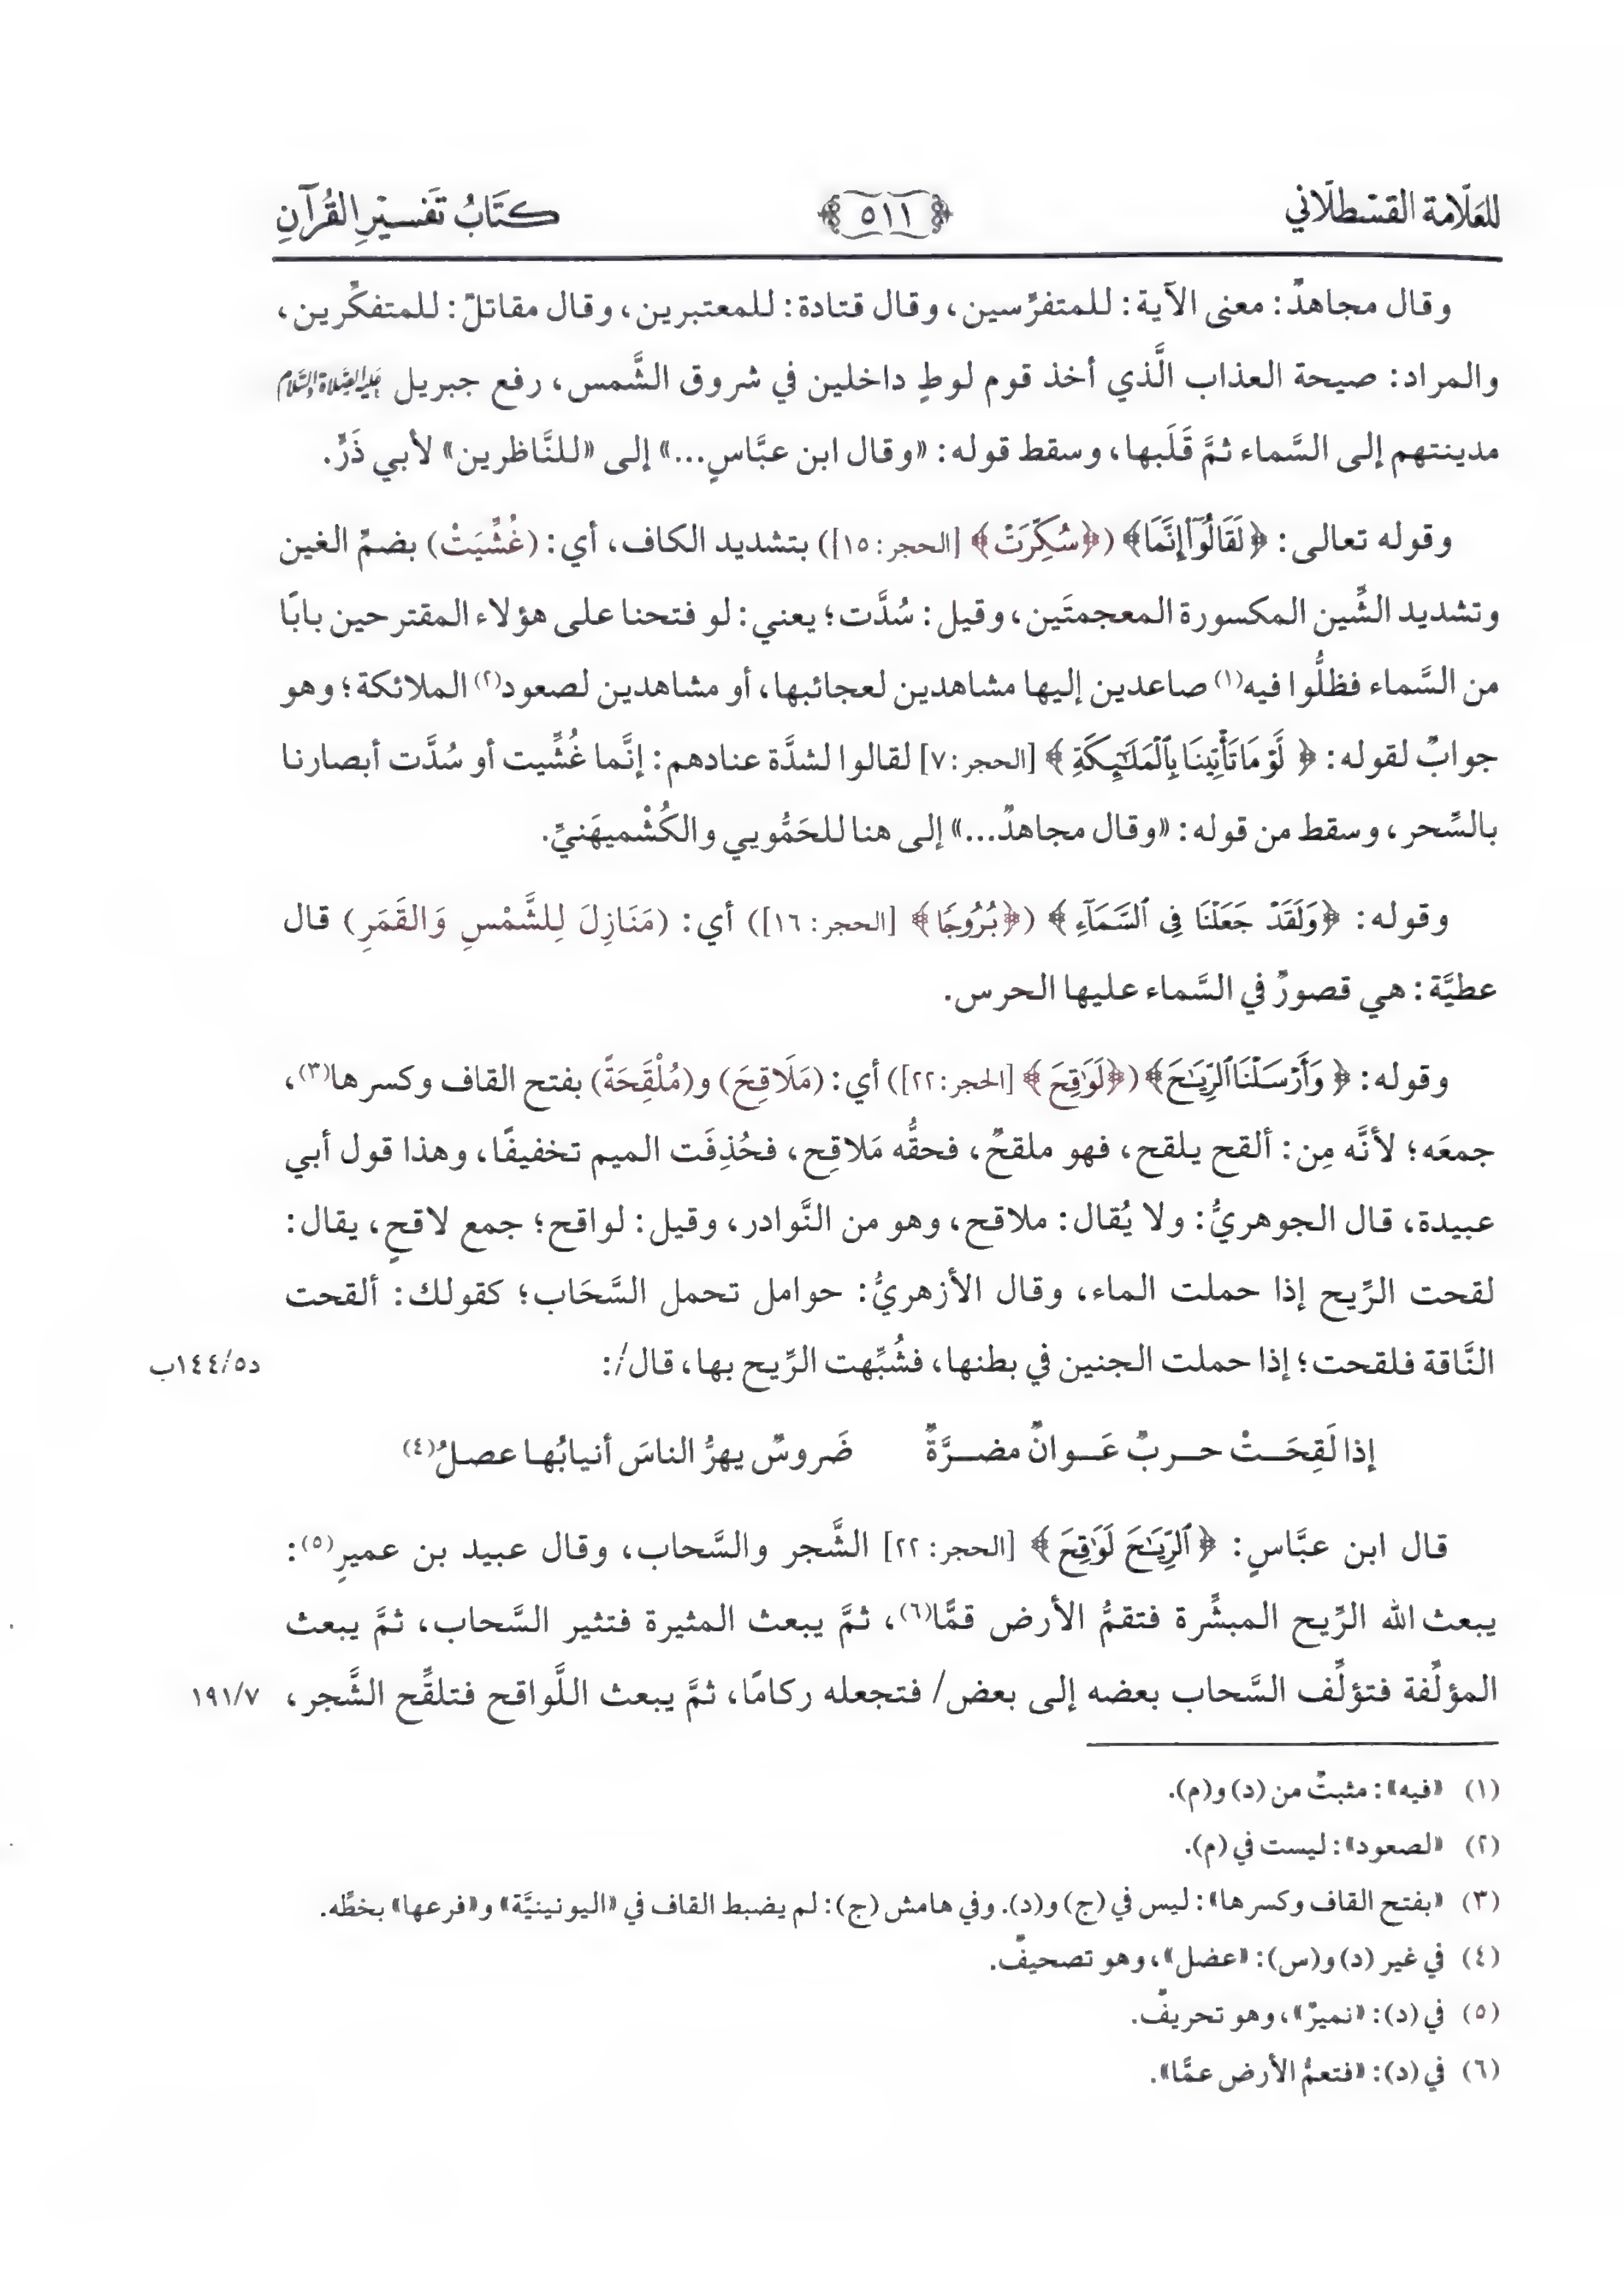 للعلّامة القسْطلّاني
٥١١
كتَابُ تَفسيْرِ القُرآنِ
وقال مجاهدٌ: معنى الآية: للمتفرِّسين، وقال قتادة: للمعتبرين، وقال مقاتلٌ: للمتفكِّرين،
والمراد: صيحة العذاب الَّذي أخذ قوم لوطٍ داخلين في شروق الشَّمس، رفع جبريل عليه الصَّلاة والسَّلام
مدينتهم إلى السَّماء ثمَّ قَلَبها، وسقط قوله: «وقال ابن عبَّاسٍ...» إلى «للنَّاظرين» لأبي ذَرٍّ.
وقوله تعالى: ﴿لَقَالُوٓا۟ إِنَّمَا﴾ (﴿سُكِّرَتْ﴾ [الحجر: ١٥]) بتشديد الكاف، أي: (غُشِّيَتْ) بضمِّ الغين
وتشديد الشِّين المكسورة المعجمتَين، وقيل: سُدَّت؛ يعني: لو فتحنا على هؤلاء المقترحين بابًا
من السَّماء فظلُّوا فيه(١) صاعدين إليها مشاهدين لعجائبها، أو مشاهدين لصعود(٢) الملائكة؛ وهو
جوابٌ لقوله: ﴿لَّوْ مَا تَأْتِينَا بِٱلْمَلَٰٓئِكَةِ﴾ [الحجر: ٧] لقالوا لشدَّة عنادهم: إنَّما غُشِّيت أو سُدَّت أبصارنا
بالسِّحر، وسقط من قوله: «وقال مجاهدٌ...» إلى هنا للحَمُّويي والكُشْميهَنيِّ.
وقوله: ﴿وَلَقَدْ جَعَلْنَا فِى ٱلسَّمَآءِ﴾ (﴿بُرُوجًا﴾ [الحجر: ١٦]) أي: (مَنَازِلَ لِلشَّمْسِ وَالقَمَرِ) قال
عطيَّة: هي قصورٌ في السَّماء عليها الحرس.
وقوله: ﴿وَأَرْسَلْنَا ٱلرِّيَٰحَ﴾ (﴿لَوَٰقِحَ﴾ [الحجر: ٢٢]) أي: (مَلَاقِحَ) و(مُلْقَِحَةً) بفتح القاف وكسرها(٣)،
جمعَه؛ لأنَّه مِن: ألقح يلقح، فهو ملقحٌ، فحقُّه مَلاقِح، فحُذِفَت الميم تخفيفًا، وهذا قول أبي
عبيدة، قال الجوهريُّ: ولا يُقال: ملاقح، وهو من النَّوادر، وقيل: لواقح؛ جمع لاقحٍ، يقال:
لقحت الرِّيح إذا حملت الماء، وقال الأزهريُّ: حوامل تحمل السَّحَاب؛ كقولك: ألقحت
النَّاقة فلقحت؛ إذا حملت الجنين في بطنها، فشُبِّهت الرِّيح بها، قال/:
د٥/١٤٤ب
إذا لَقِحَـتْ حـربٌ عَـوانٌ مضـرَّةٌ ضَروسٌ يهرُّ الناسَ أنيابُها عصلُ(٤)
قال ابن عبَّاسٍ: ﴿ٱلرِّيَٰحَ لَوَٰقِحَ﴾ [الحجر: ٢٢] الشَّجر والسَّحاب، وقال عبيد بن عميرٍ(٥):
يبعث الله الرِّيح المبشِّرة فتقمُّ الأرض قمًّا(٦)، ثمَّ يبعث المثيرة فتثير السَّحاب، ثمَّ يبعث
المؤلِّفة فتؤلِّف السَّحاب بعضه إلى بعض/ فتجعله ركامًا، ثمَّ يبعث اللَّواقح فتلقِّح الشَّجر،
١٩١/٧
(١) «فيه»: مثبتٌ من (د) و(م).
(٢) «لصعود»: ليست في (م).
(٣) «بفتح القاف وكسرها»: ليس في (ج) و(د). وفي هامش (ج): لم يضبط القاف في «اليونينيَّة» و«فرعها» بخطِّه.
(٤) في غير (د) و(س): «عضل»، وهو تصحيفٌ.
(٥) في (د): «نميرٌ»، وهو تحريفٌ.
(٦) في (د): «فتعمُّ الأرض عمًّا».